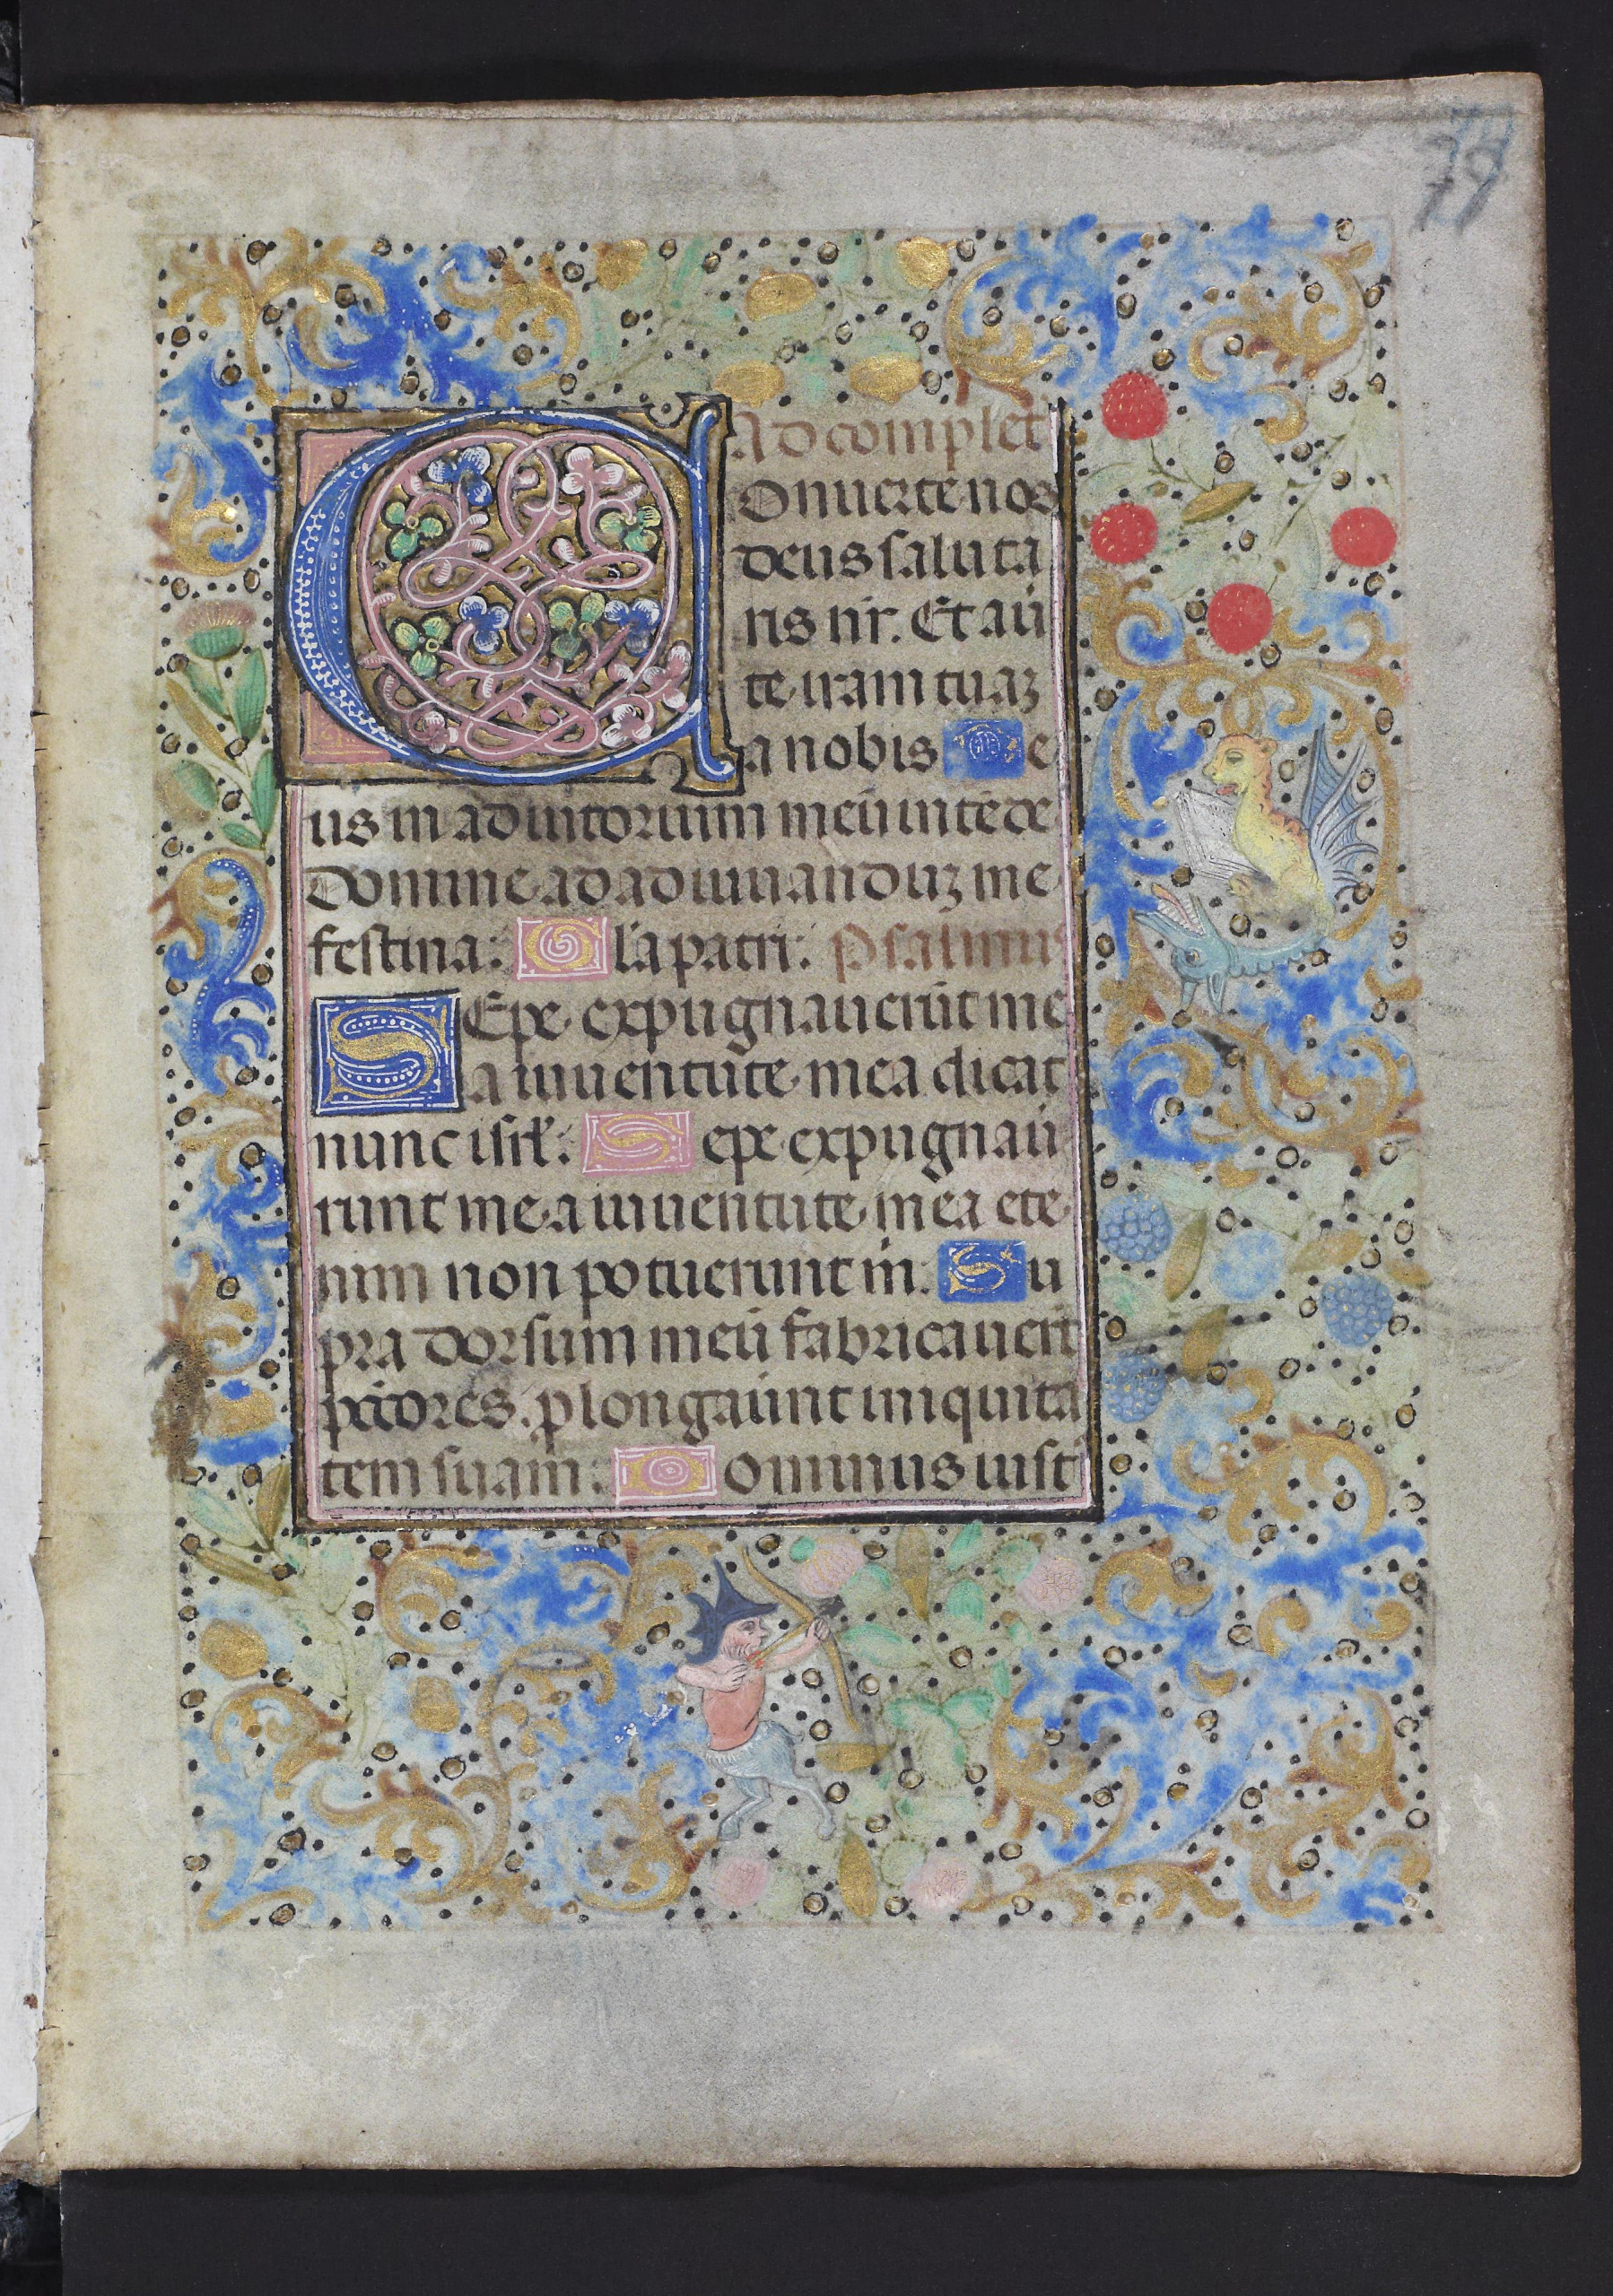 79
Ad complet
COnuerte nos
deus saluta
ris nr̄. Et aū
te iram tuaꝫ
a nobis De
us in adiutorium meū intēde
Domine ad adiuuanduꝫ me
festina: Gl'a patri: Psalmus
SEpe expugnauerūt me
a iuuentute mea dicat
nunc isrl': Sepe expugnaū
runt me a iuuentute mea ete
nim non potuerunt m̄: Su
pra dorsum meū fabricauert̄
pctōres. plongaūnt iniquita
tem suam: Dominus iusti